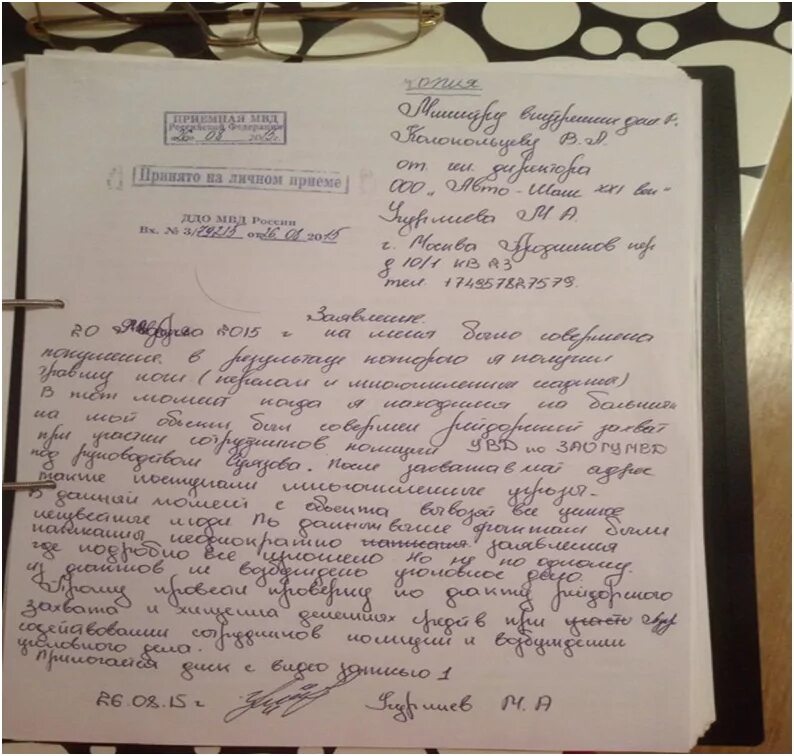 копия
ПРИЕМНАЯ МВД
Российской Федерации
26 08 2015г.
Принято на личном приеме
ДДО МВД России
Вх. № 3/79215 от 26.08 2015
Министру внутренних дел Р.
Колокольцеву В.А.
от ген. директора
ООО "Авто-Шанс XXI век"
М А.
г. Москва пер
д 10/1 кв 23
тел. +74957827579.
Заявление.
20 2015 г на меня было совершена
покушение в результате которого я получил
травму ноги (перелом и многочисленные ссадины)
В тот момент когда я находился на больнич
на мой объект был совершен рейдерский захват
при участии сотрудников полиции УВД по ЗАО ГУ МВД
под руководством . После захвата в мой адрес
также поступали многочисленные угрозы.
В данный момент с объекта вывозят все ценное
неизвестные люди По данным выше фактам были
написаны неоднократно написал заявления
где подробно все изложено Но не по одному
из фактов не возбуждено уголовное дело.
Прошу провести проверку по факту рейдерского
захвата и хищения денежных средств при участ
содействовании сотрудников полиции и возбуждении
уголовного дела.
Прилогается диск с видео записью 1
26.08.15 г М. А